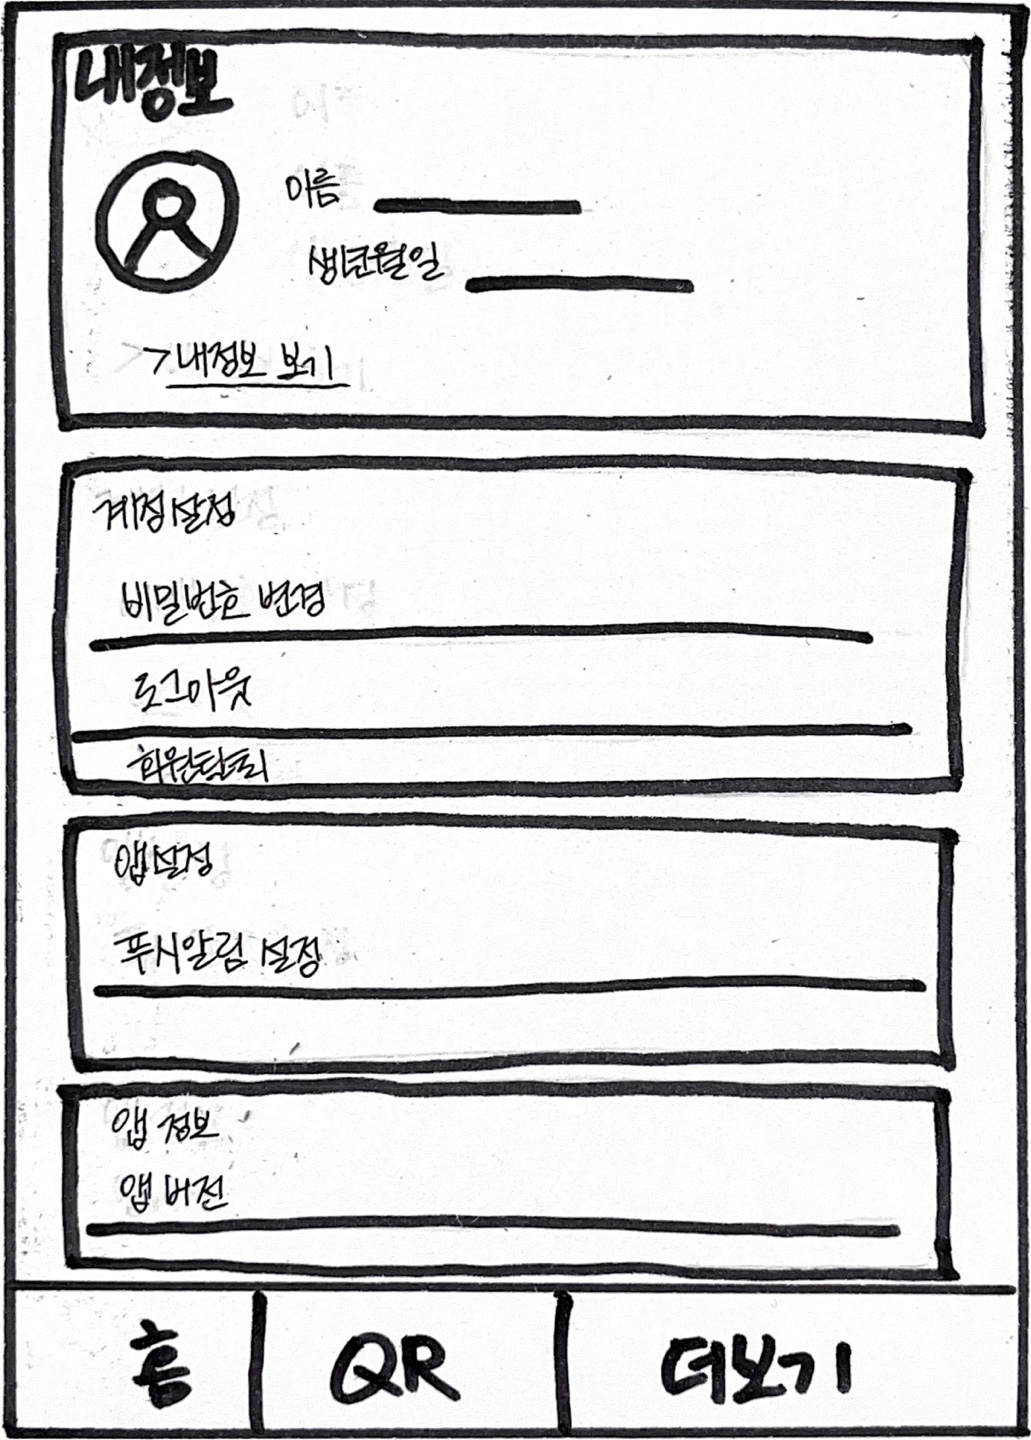 내정보
이름
생년월일
>내정보 보기
계정설정
비밀번호 변경
로그아웃
회원탈퇴
앱설정
푸시알림 설정
앱 정보
앱 버전
홈 QR 더보기